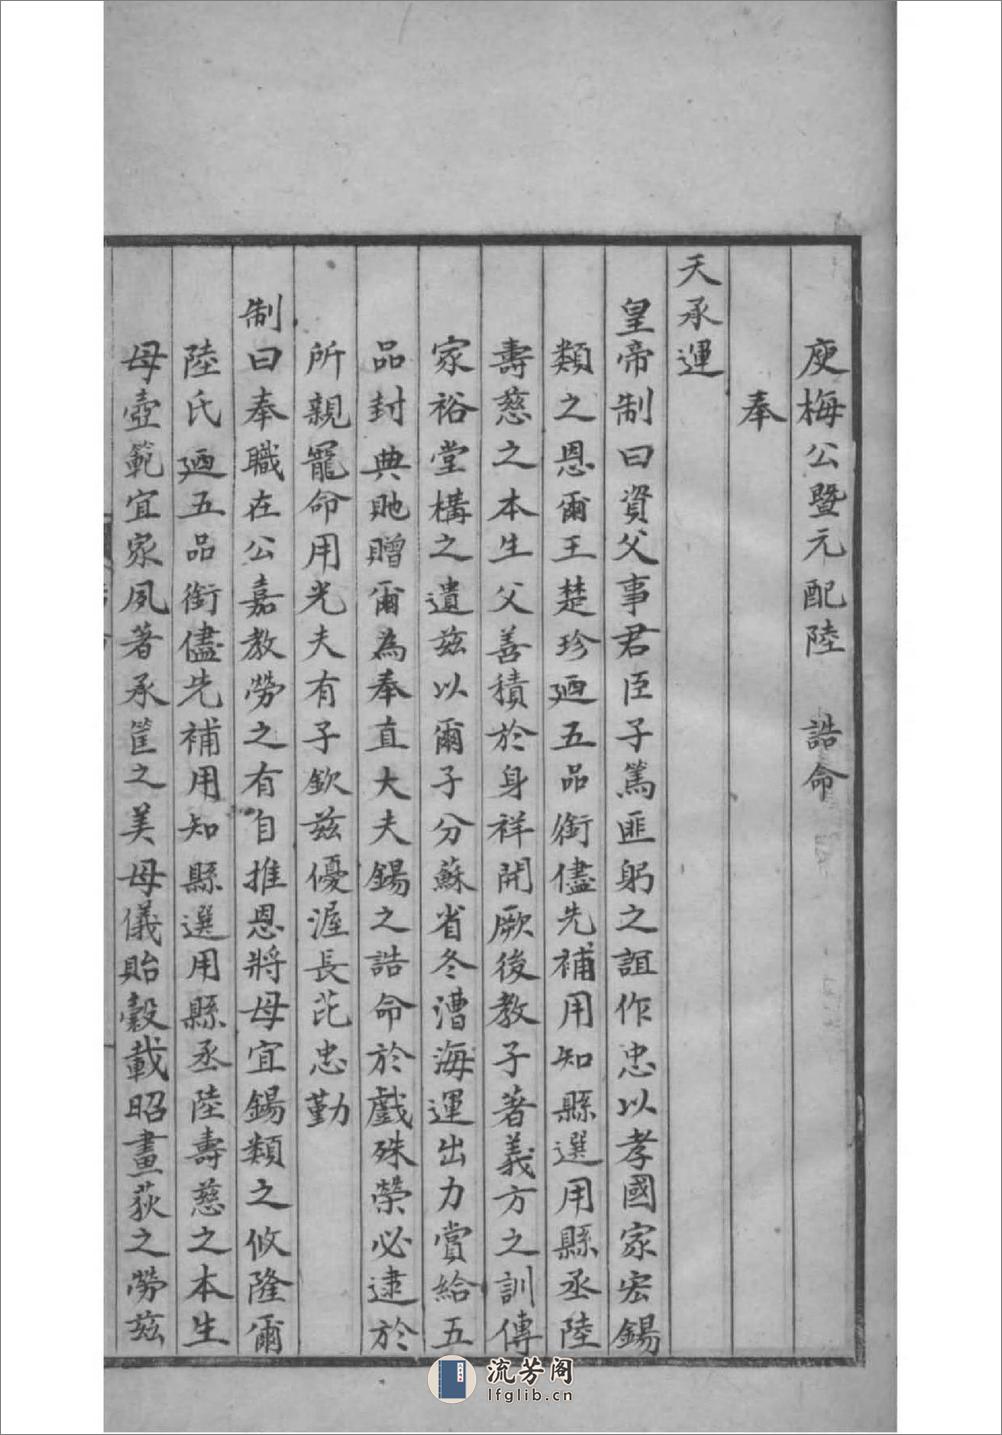 庾梅公暨元配陸　誥命
奉
天承運
皇帝制曰資父事君臣子篤匪躬之誼作忠以孝國家宏錫
類之恩爾王楚珍廼五品銜儘先補用知縣選用縣丞陸
壽慈之本生父善積於身祥開厥後教子著義方之訓傳
家裕堂構之遺茲以爾子分蘇省冬漕海運出力賞給五
品封典貤贈爾為奉直大夫錫之誥命於戲殊榮必逮於
所親寵命用光夫有子欽茲優渥長茈忠勤
制曰奉職在公嘉教勞之有自推恩將母宜錫類之攸隆爾
陸氏廼五品銜儘先補用知縣選用縣丞陸壽慈之本生
母壼範宜家夙著承筐之美母儀貽穀載昭畫荻之勞茲
流芳阁
lfglib.cn